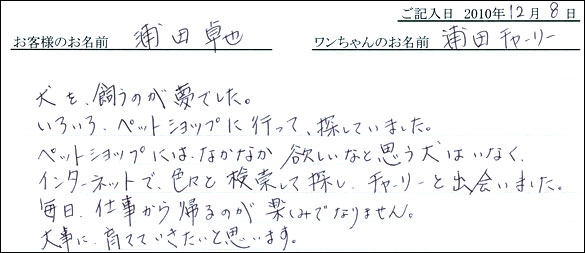 ご記入日 2010年12月8日
お客様のお名前 浦田卓也 ワンちゃんのお名前 浦田チャーリー
犬を、飼うのが夢でした。
いろいろ、ペットショップに行って、探していました。
ペットショップには、なかなか欲しいなと思う犬はいなく、
インターネットで、色々と検索して探し、チャーリーと出会いました。
毎日、仕事から帰るのが楽しみでなりません。
大事に、育てていきたいと思います。